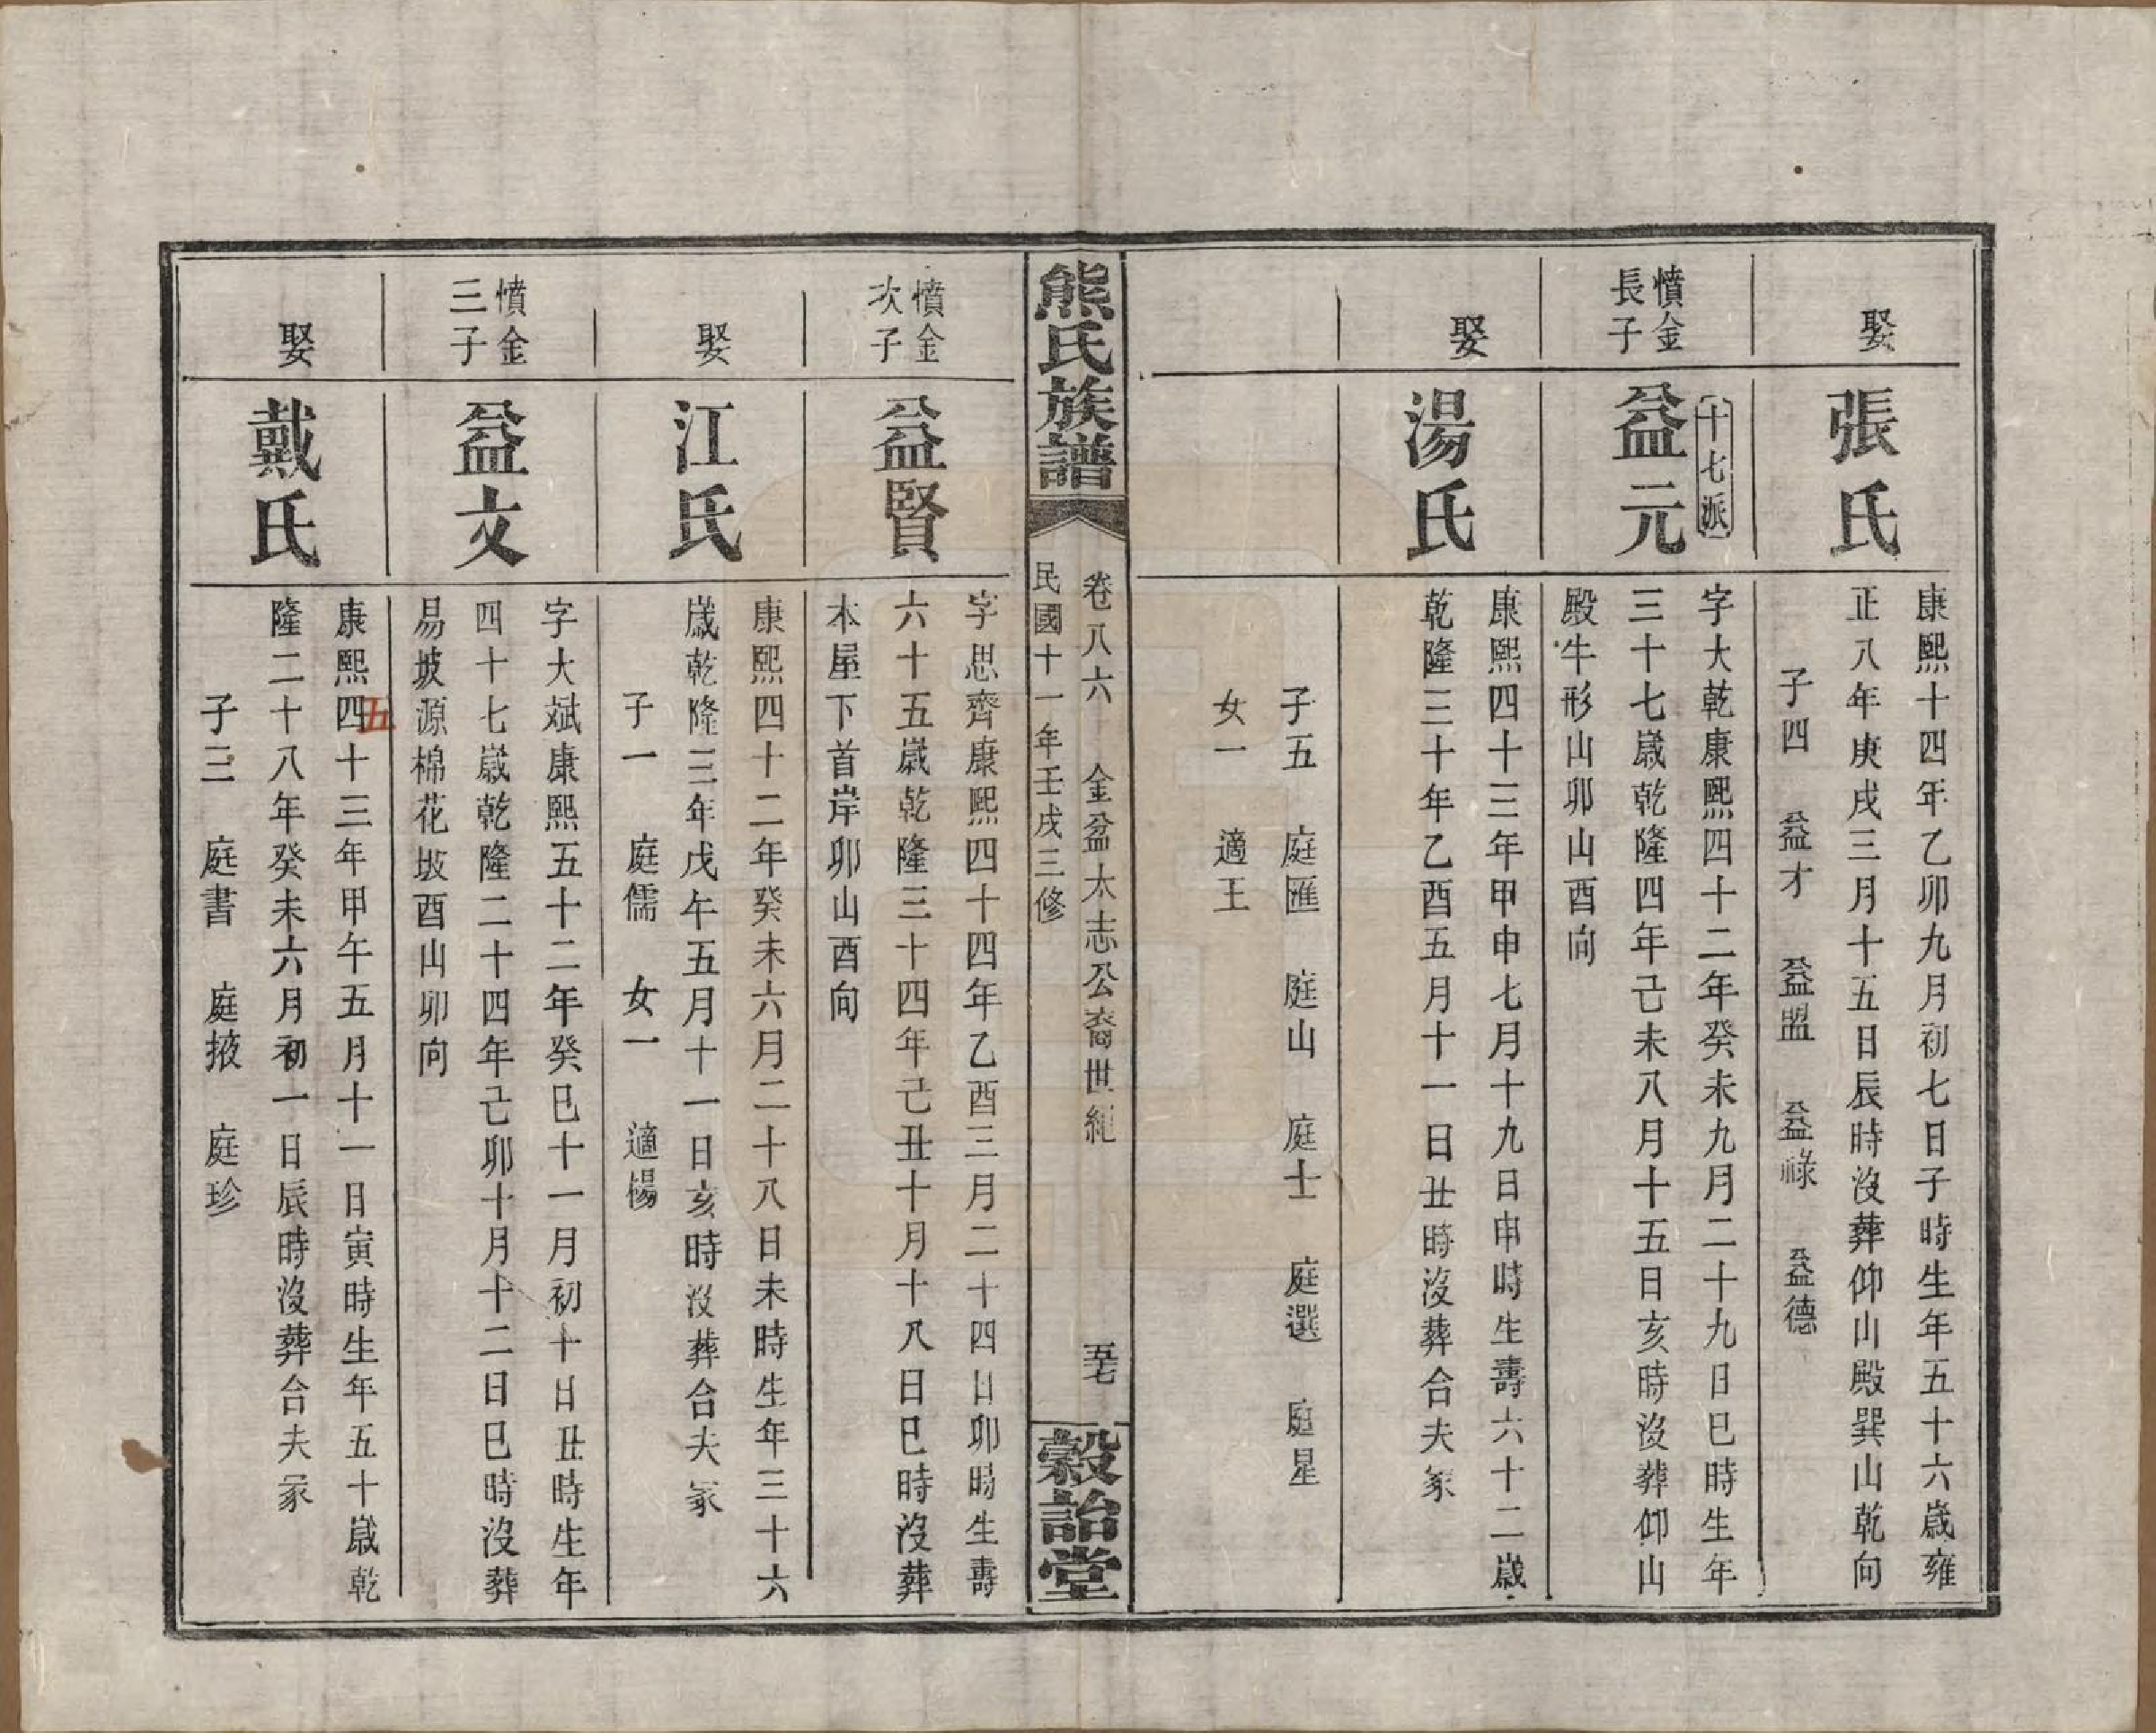 娶
張氏
康熙十四年乙卯九月初七日子時生年五十六歲雍
正八年庚戌三月十五日辰時沒葬仰山殿巽山乾向
子四　益才　益盟　益祿　益德
憤金
長子
十七派
益元
字大乾康熙四十二年癸未九月二十九日巳時生年
三十七歲乾隆四年己未八月十五日亥時沒葬仰山
殿牛形山卯山酉向
娶
湯氏
康熙四十三年甲申七月十九日申時生壽六十二歲
乾隆三十年乙酉五月十一日丑時沒葬合夫冢
子五　庭匯　庭山　庭士　庭選　庭星
女一　適王
熊氏族譜
卷八六　金盆太志公裔世紀　五七
民國十一年壬戌三修
穀詒堂
憤金
次子
益賢
字思齊康熙四十四年乙酉三月二十四日卯時生壽
六十五歲乾隆三十四年己丑十月十八日巳時沒葬
本屋下首岸卯山酉向
娶
江氏
康熙四十二年癸未六月二十八日未時生年三十六
歲乾隆三年戊午五月十一日亥時沒葬合夫冢
子一　庭儒　女一　適楊
憤金
三子
益文
字大斌康熙五十二年癸巳十一月初十日丑時生年
四十七歲乾隆二十四年己卯十月十二日巳時沒葬
易坡源棉花坡酉山卯向
娶
戴氏
康熙四五十三年甲午五月十一日寅時生年五十歲乾
隆二十八年癸未六月初一日辰時沒葬合夫冢
子三　庭書　庭掖　庭珍